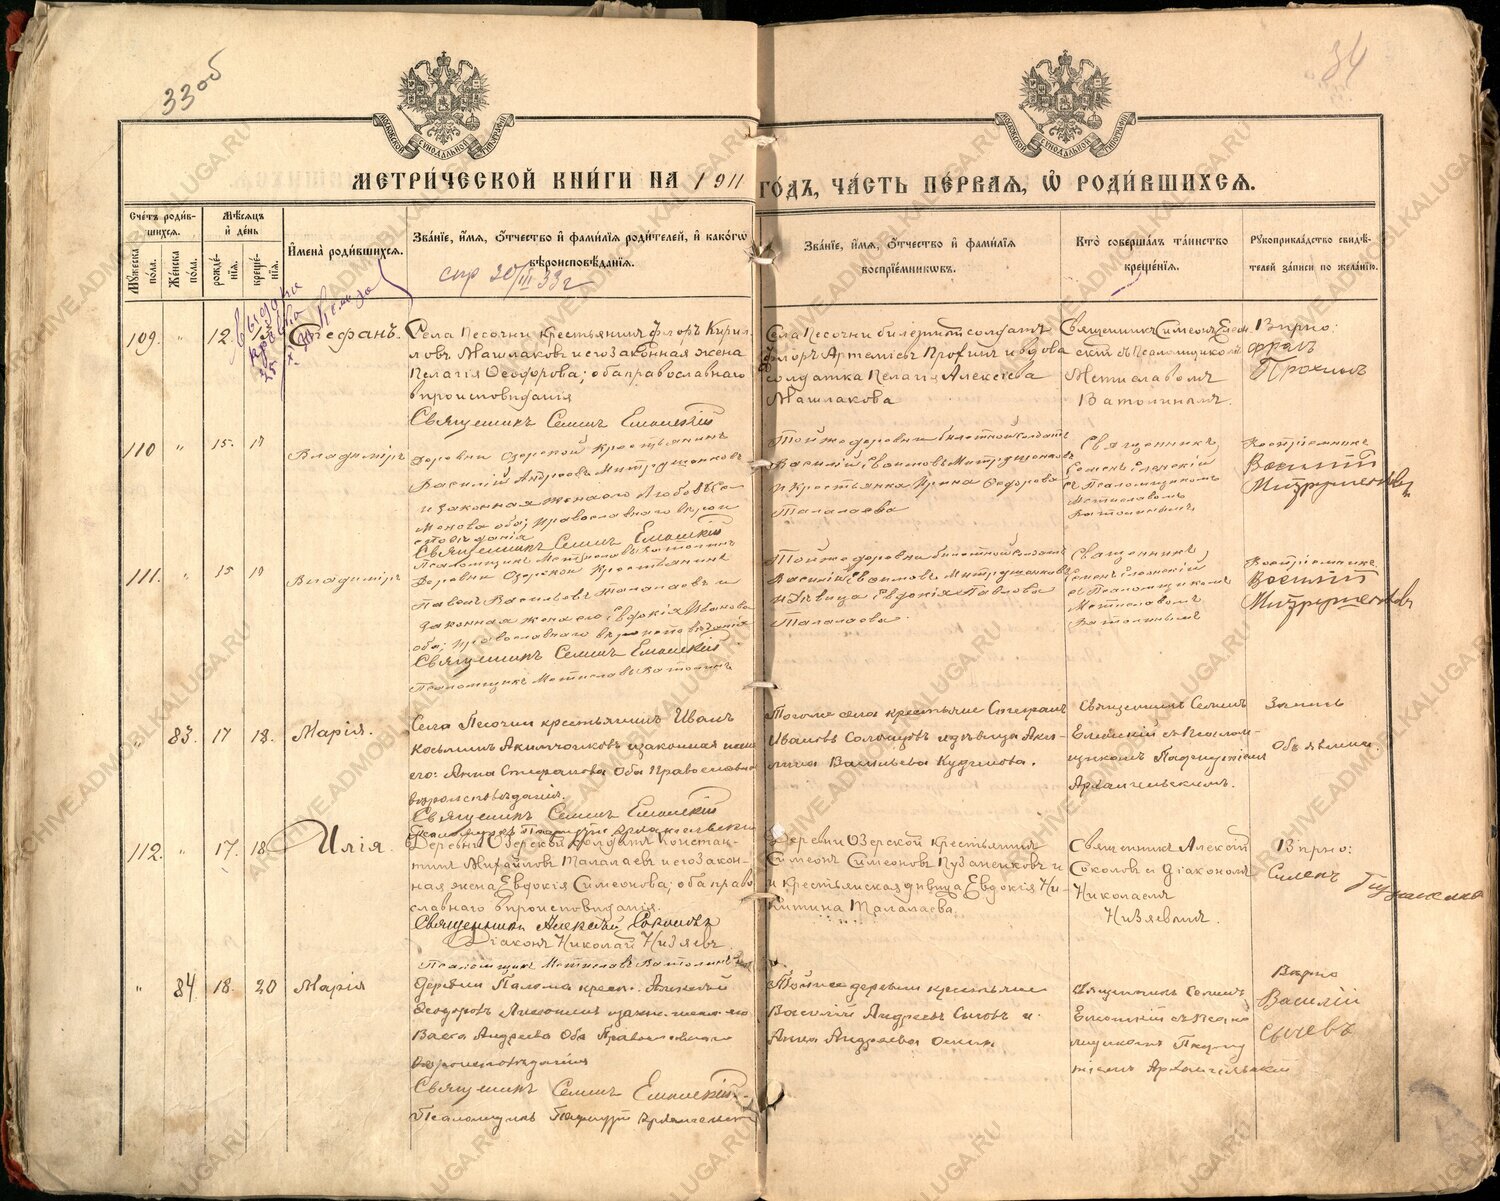 33об
34
МОСКОВСКОЙ СѴНОДАЛЬНОЙ ТИПОГРАФІИ
МОСКОВСКОЙ СѴНОДАЛЬНОЙ ТИПОГРАФІИ
МЕТРИ́ЧЕСКОЙ КНИ́ГИ НА 1911 ГО́ДЪ, ЧА́СТЬ ПЕ́РВАЯ, Ѡ РОДИ́ВШИХСЯ.
Сче́тъ роди́вшихся.
Му́жеска пола.
Же́нска пола.
Мѣ́сяцъ и҆ де́нь
рожде́нїя.
креще́нїя.
И҆мена̀ роди́вшихся.
Зва́нїе, и҆́мя, ѻ҆́тчество и҆ фами́лїя роди́телей, и҆ како́гѡ
вѣроисповѣ́данїя.
Зва́нїе, и҆́мя, ѻ҆́тчество и҆ фами́лїя
воспрїе́мниковъ.
Кто̀ соверша́лъ та́инство
креще́нїя.
Рꙋкоприкла́дство свидѣ́-
телей за́писи по жела́нїю.
спр 20/III 33 г
109. " 12. Стефанъ.
Села Песочни крестьянинъ Флоръ Кирил-
ловъ Машлаковъ и его законная жена
Пелагія Ѳеодорова; оба православнаго
вѣроисповѣданія
Священникъ Семенъ Еленскій
Села Песочни билетный солдатъ
Флоръ Артемьевъ Прохинъ и вдова
солдатка Пелагія Алексѣева
Машлакова
Священникъ Симеонъ Елен
скій съ Псаломщикомъ
Мстиславомъ
Ватолинымъ.
Вѣрно:
Флоръ
Прохинъ
110 " 15. 17 Владиміръ
Деревни Озерской Крестьянинъ
Василій Андреевъ Митрушенковъ
и законная жена его Любовь Се-
менова оба; Православнаго вѣрои
сповѣданія
Священникъ Семенъ Еленскій
Псаломщикъ Мстиславъ Ватолинъ
Той же деревни билетной солдатъ
Василій Ивановъ Митрушенковъ
и Крестьянка Ирина Ѳедорова
Талалаева
Священникъ
Семенъ Еленскій
съ Псаломщикомъ
Мстиславомъ
Ватолинымъ
Воспріемникъ
Василій
Митрушенковъ
111. " 15 17 Владиміръ
Деревни Озерской Крестьянинъ
Павелъ Васильевъ Талалаевъ и
законная жена его Евдокія Иванова
оба; Православнаго вѣроисповѣданія
Священникъ Семенъ Еленскій
Псаломщикъ Мстиславъ Ватолинъ
Той же деревни билетной солдатъ
Василій Ивановъ Митрушенковъ
и Дѣвица Евдокія Павлова
Талалаева.
Священникъ
Семенъ Еленскій
съ Псаломщикомъ
Мстиславомъ
Ватолинымъ
Воспріемникъ
Василій
Митрушенковъ
" 83. 17 18. Марія.
Села Песочни крестьянинъ Иванъ
Косьминъ и законная жена
его: Анна Стефанова Оба Православна
вѣроисповѣданія.
Священникъ Семенъ Еленскій
Того же села крестьяне Стефанъ
Ивановъ и дѣвица Аку-
лина Васильева Кудинова.
Священникъ Семенъ
Еленскій съ Псалом-
щикомъ Пафнутіемъ
Архангельскимъ.
Запись
Объявлена.
112. " 17. 18. Илія.
Деревни Озерской солдатъ Констан-
тинъ Михайловъ Талалаевъ и его закон-
ная жена Евдокія Симеонова; оба право-
славнаго вѣроисповѣданія.
Священникъ Алексій Соколовъ
Діаконъ Николай Низяевъ.
Псаломщикъ Мстиславъ Ватолинъ
Деревни Озерской крестьянинъ
Симеонъ Симеоновъ Пузаненковъ и
и крестьянская дѣвица Евдокія Ни-
китина Талалаева.
Священникъ Алексій
Соколовъ и Діаконъ
Николаемъ
Низяевымъ.
Вѣрно:
Симеонъ
" 84. 18. 20 Марія
Деревни Палома крест. Алексѣй
Ѳеодоровъ и законн. жена его
Васса Андреева Оба Православнаго
вѣроисповѣданія
Священникъ Семенъ Еленскій
Псаломщикъ Пафнутій Архангельскій
Той же деревни крестьяне
Василій Андреевъ Сычовъ и
Анна Андреева
Священникъ Семенъ
Еленскій съ Псало
мщикомъ Пафну
тіемъ Архангельскій
Вѣрно
Василій
Сычевъ
ARCHIVE.ADMOBLKALUGA.RU